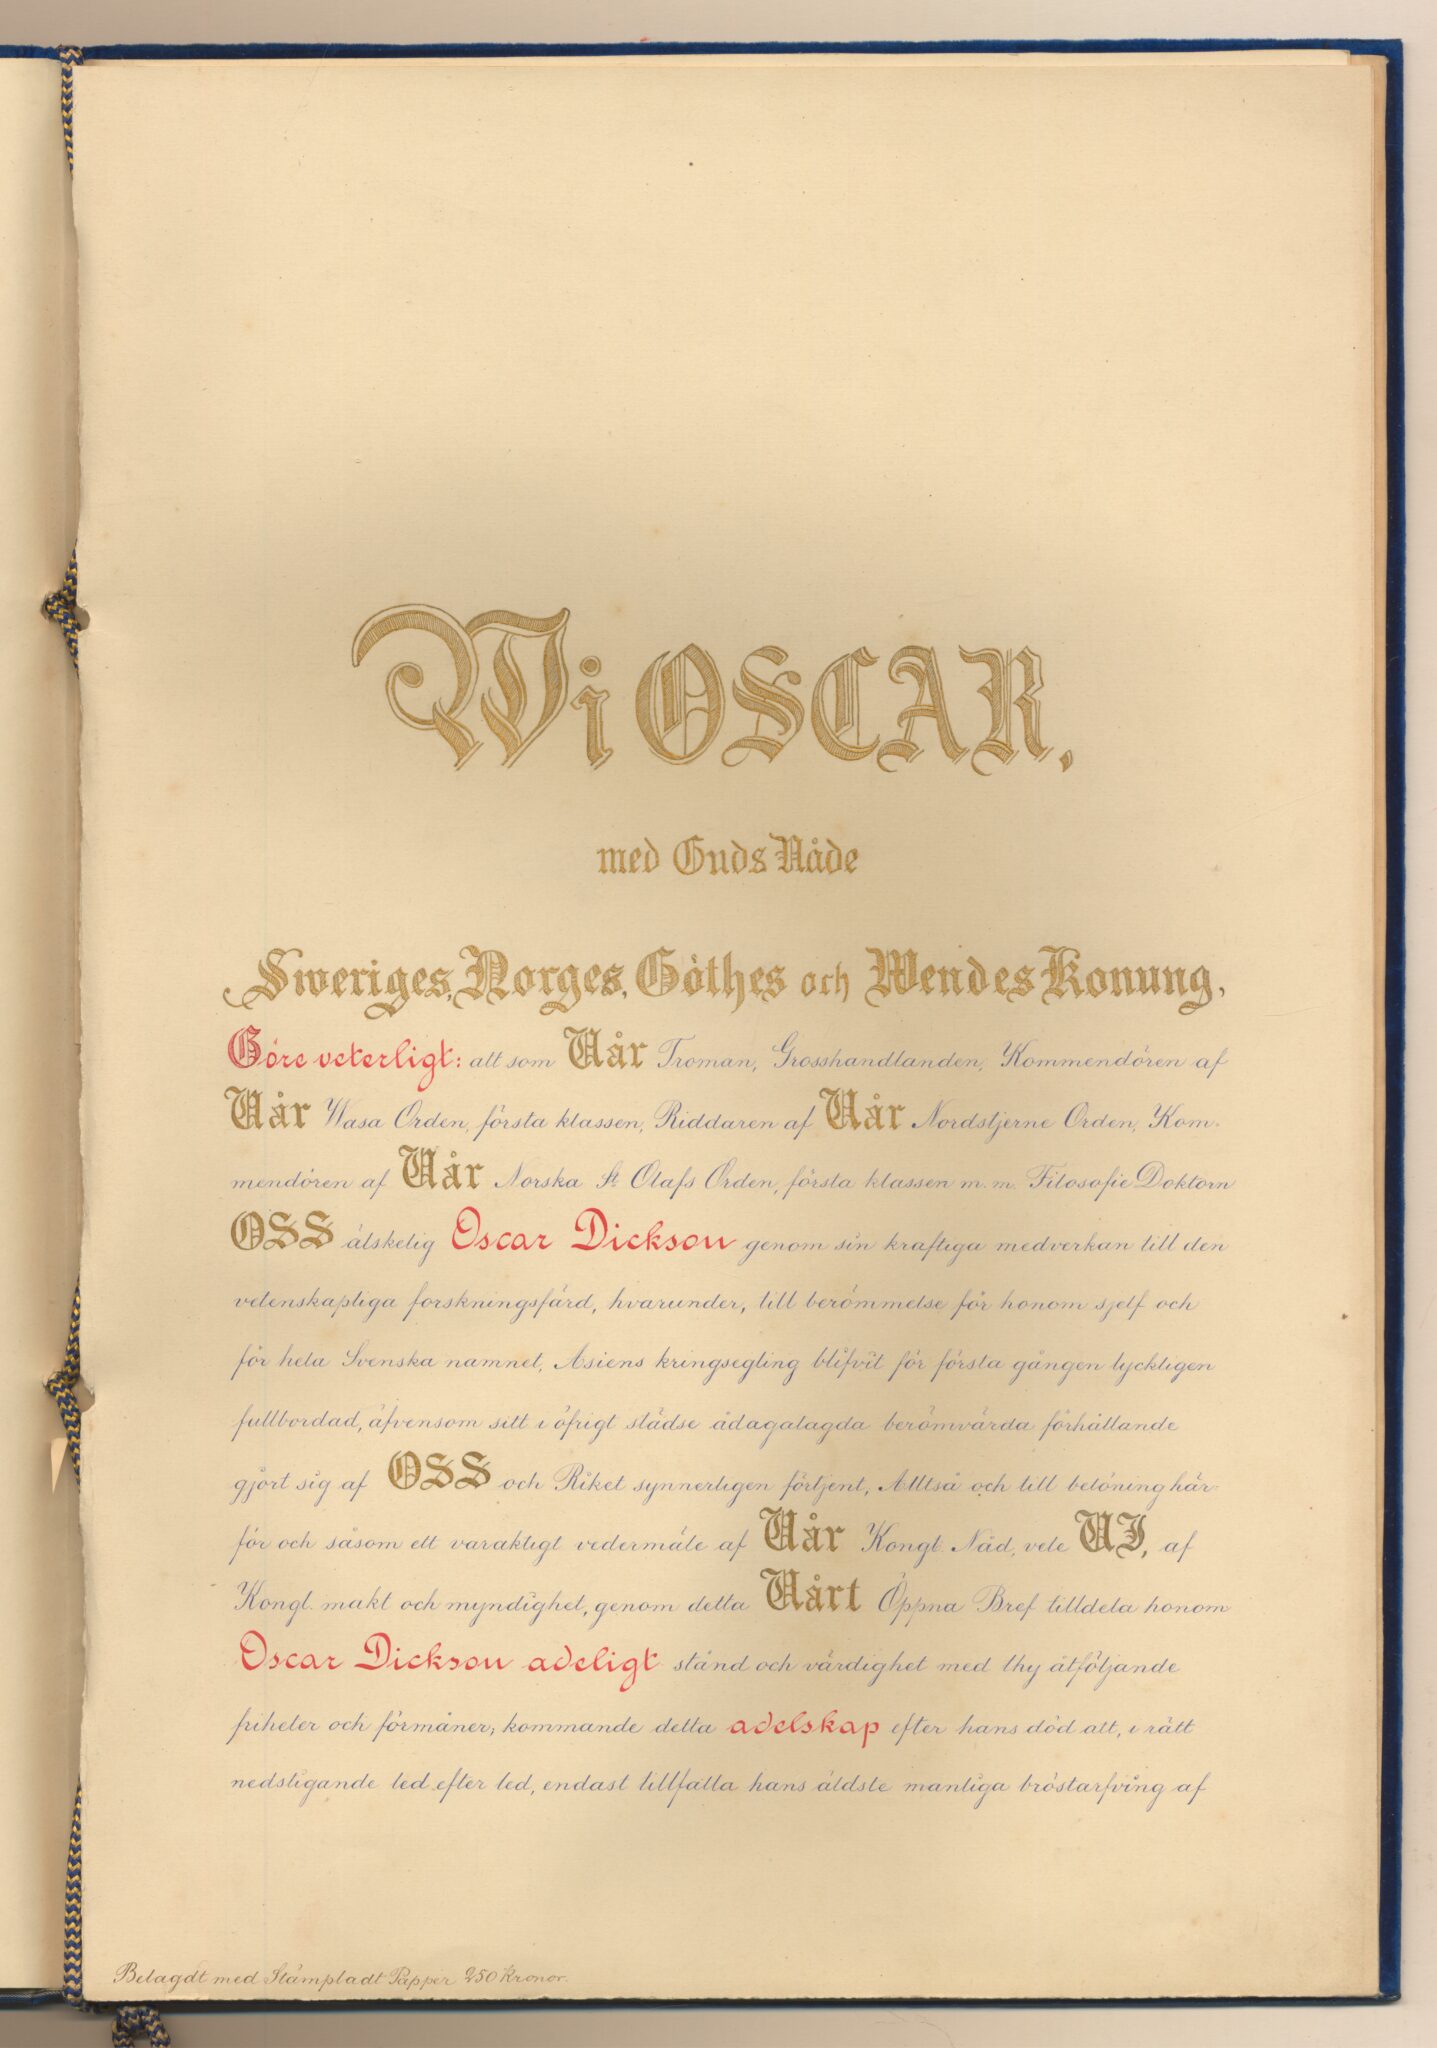 Wi OSCAR,
med Guds Nåde
Sweriges, Norges, Göthes och Wendes Konung,
Göre veterligt: att som Vår Troman, Grosshandlanden, Kommendören af
Vår Wasa Orden, första klassen, Riddaren af Vår Nordstjerne Orden, Kom-
mendören af Vår Norska St Olafs Orden, första klassen m. m. Filosofie Doktorn
OSS älskelig Oscar Dickson genom sin kraftiga medverkan till den
vetenskapliga forskningsfärd, hvarunder, till berömmelse för honom sjelf och
för hela Svenska namnet, Asiens kringsegling blifvit för första gången lyckligen
fullbordad, äfvensom sitt i öfrigt städse ådagalagda berömvärda förhållande
gjort sig af OSS och Riket synnerligen förtjent, Alltså och till belöning här-
för och såsom ett varaktigt vedermäle af Vår Kongl. Nåd, vele VI, af
Kongl. makt och myndighet, genom detta Vårt Öppna Bref tilldela honom
Oscar Dickson adeligt stånd och värdighet med thy åtföljande
friheter och förmåner; kommande detta adelskap efter hans död att, i rätt
nedstigande led efter led, endast tillfalla hans äldste manliga bröstarfving af
Belagdt med Stämpladt Papper 250 Kronor.